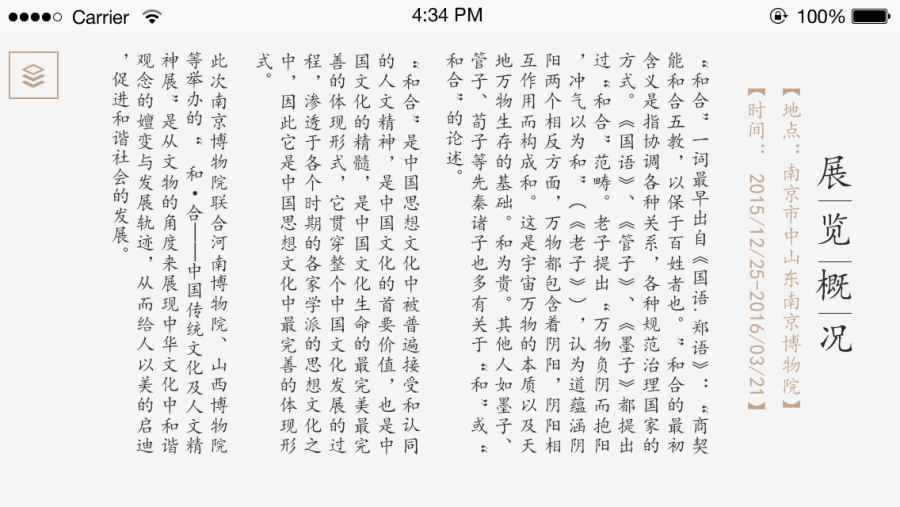 Carrier
4:34 PM
100%
展览概况
【地点：南京市中山东南京博物院】
【时间： 2015/12/25-2016/03/21】
“和合”一词最早出自《国语.郑语》：“商契
能和合五教，以保于百姓者也。”和合的最初
含义是指协调各种关系，各种规范治理国家的
方式。《国语》、《管子》、《墨子》都提出
过“和合”范畴。老子提出“万物负阴而抱阳
，冲气以为和”（《老子》），认为道蕴涵阴
阳两个相反方面，万物都包含着阴阳，阴阳相
互作用而构成和。这是宇宙万物的本质以及天
地万物生存的基础。和为贵。其他人如墨子、
管子、荀子等先秦诸子也多有关于“和”或“
和合”的论述。
“和合”是中国思想文化中被普遍接受和认同
的人文精神，是中国文化的首要价值，也是中
国文化的精髓，是中国文化生命的最完美最完
善的体现形式，它贯穿整个中国文化发展的过
程，渗透于各个时期的各家学派的思想文化之
中，因此它是中国思想文化中最完善的体现形
式。
此次南京博物院联合河南博物院、山西博物院
等举办的“ 和•合——中国传统文化及人文精
神展”是从文物的角度来展现中华文化中和谐
观念的嬗变与发展轨迹，从而给人以美的启迪
，促进和谐社会的发展。